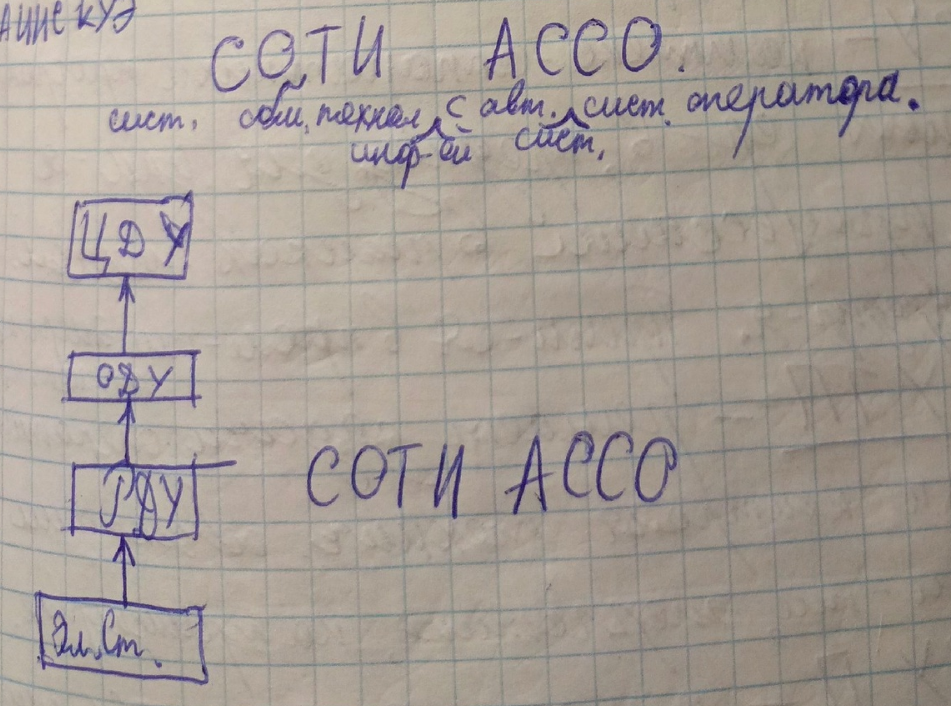 АИИС КУЭ
СОТИ АССО.
сист. обм. технол. с авт. сист. сист. оператора.
инф-ей
ЦДУ
ОДУ
РДУ
СОТИ АССО
Эл. Ст.